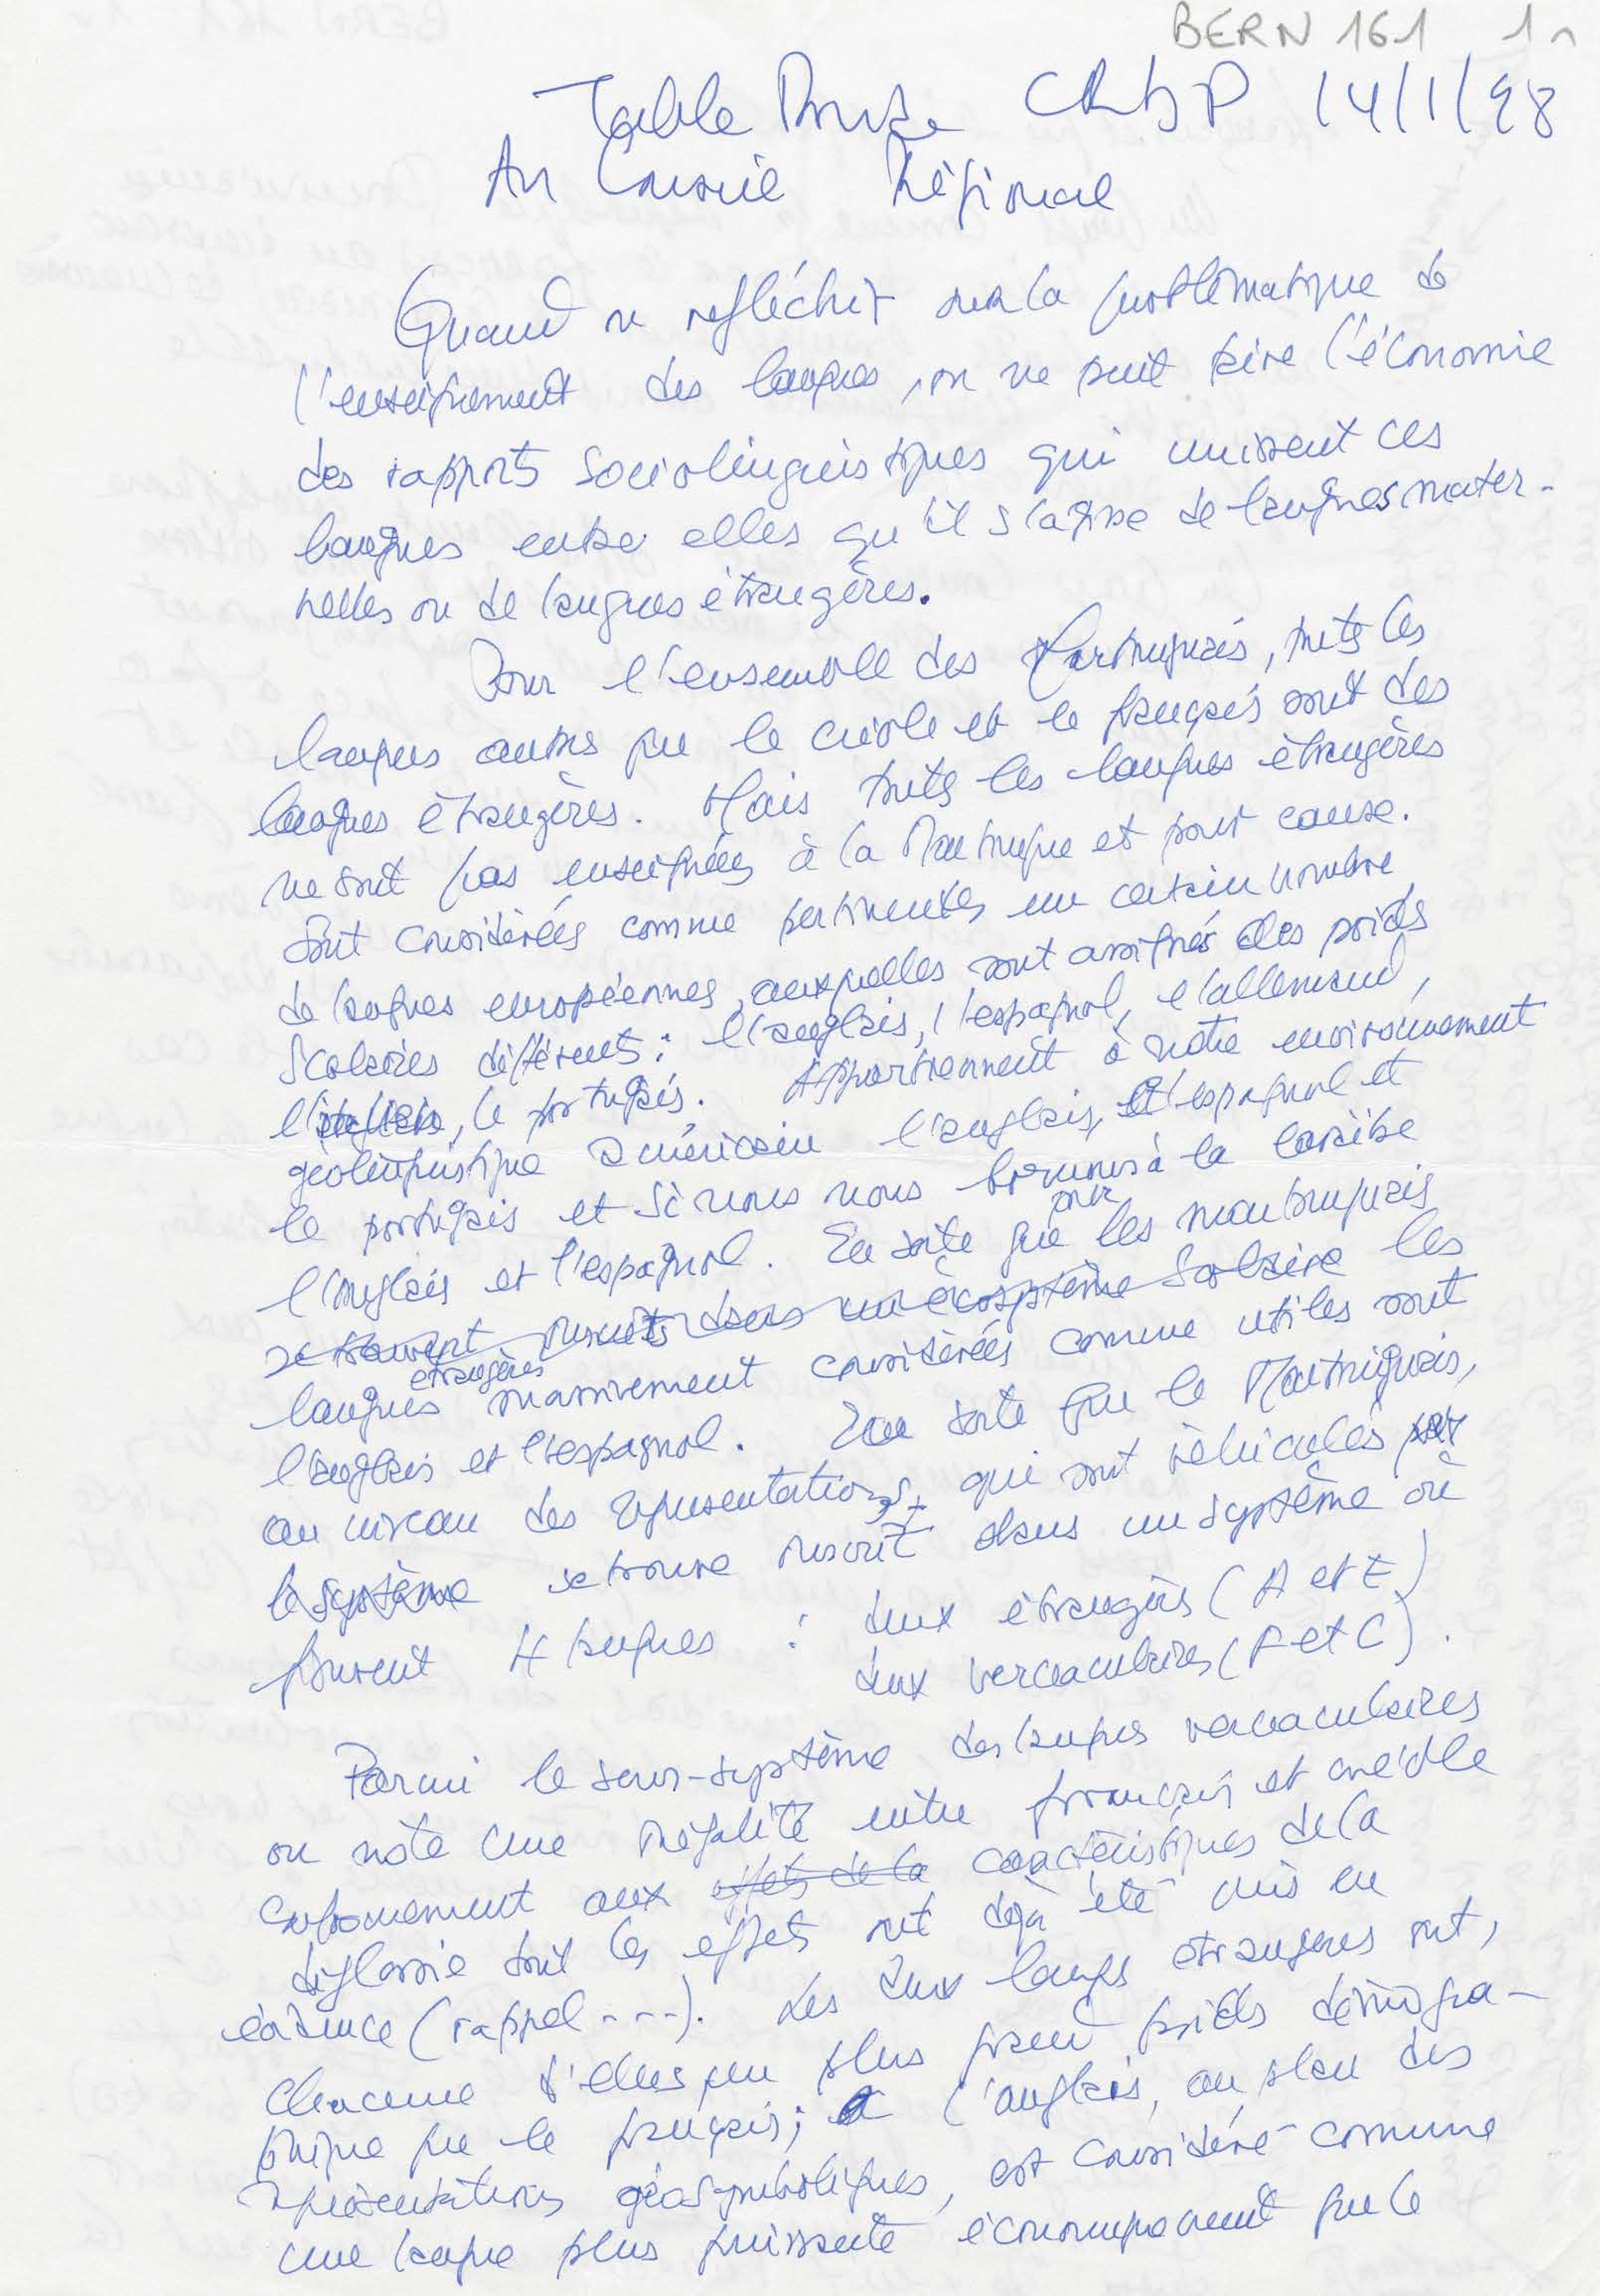 BERN 161 1
Table Ronde CRDP 14/1/98
Au Conseil Régional
Quand on réfléchit sur la problématique de
l'enseignement des langues, on ne peut faire l'économie
des rapports sociolinguistiques qui unissent ces
langues entre elles qu'il s'agisse de langues mater-
nelles ou de langues étrangères.
Pour l'ensemble des Martiniquais, toutes les
langues autres que le créole et le français sont des
langues étrangères. Mais toutes les langues étrangères
ne sont pas enseignées à la Martinique et pour cause.
Sont considérées comme pertinentes un certain nombre
de langues européennes, auxquelles sont assignés des poids
scolaires différents : l'anglais, l'espagnol, l'allemand,
l'italien, le portugais. Appartiennent à notre environnement
géolinguistique américain l'anglais, l'espagnol et
le portugais et si nous nous bornons à la Caraïbe
l'anglais et l'espagnol. En sorte que pour les martiniquais
se trouvent inscrits dans un écosystème scolaire les
langues étrangères massivement considérées comme utiles sont
l'anglais et l'espagnol. En sorte que le Martiniquais,
au niveau des représentations qui sont véhiculées par
le système se trouve inscrit dans un système où
4 langues : deux étrangères (A et E)
deux vernaculaires (F et C).
Parmi le sous-système des langues vernaculaires
on note une inégalité entre français et créole
conformément aux effets de la caractéristiques de la
diglossie dont les effets ont déjà été mis en
évidence (rappel ----). Les deux langues étrangères ont,
chacune d'elles un plus grand poids démogra-
phique que le français; l'anglais, au plan des
représentations géosymboliques, est considéré comme
une langue plus puissante économiquement que le